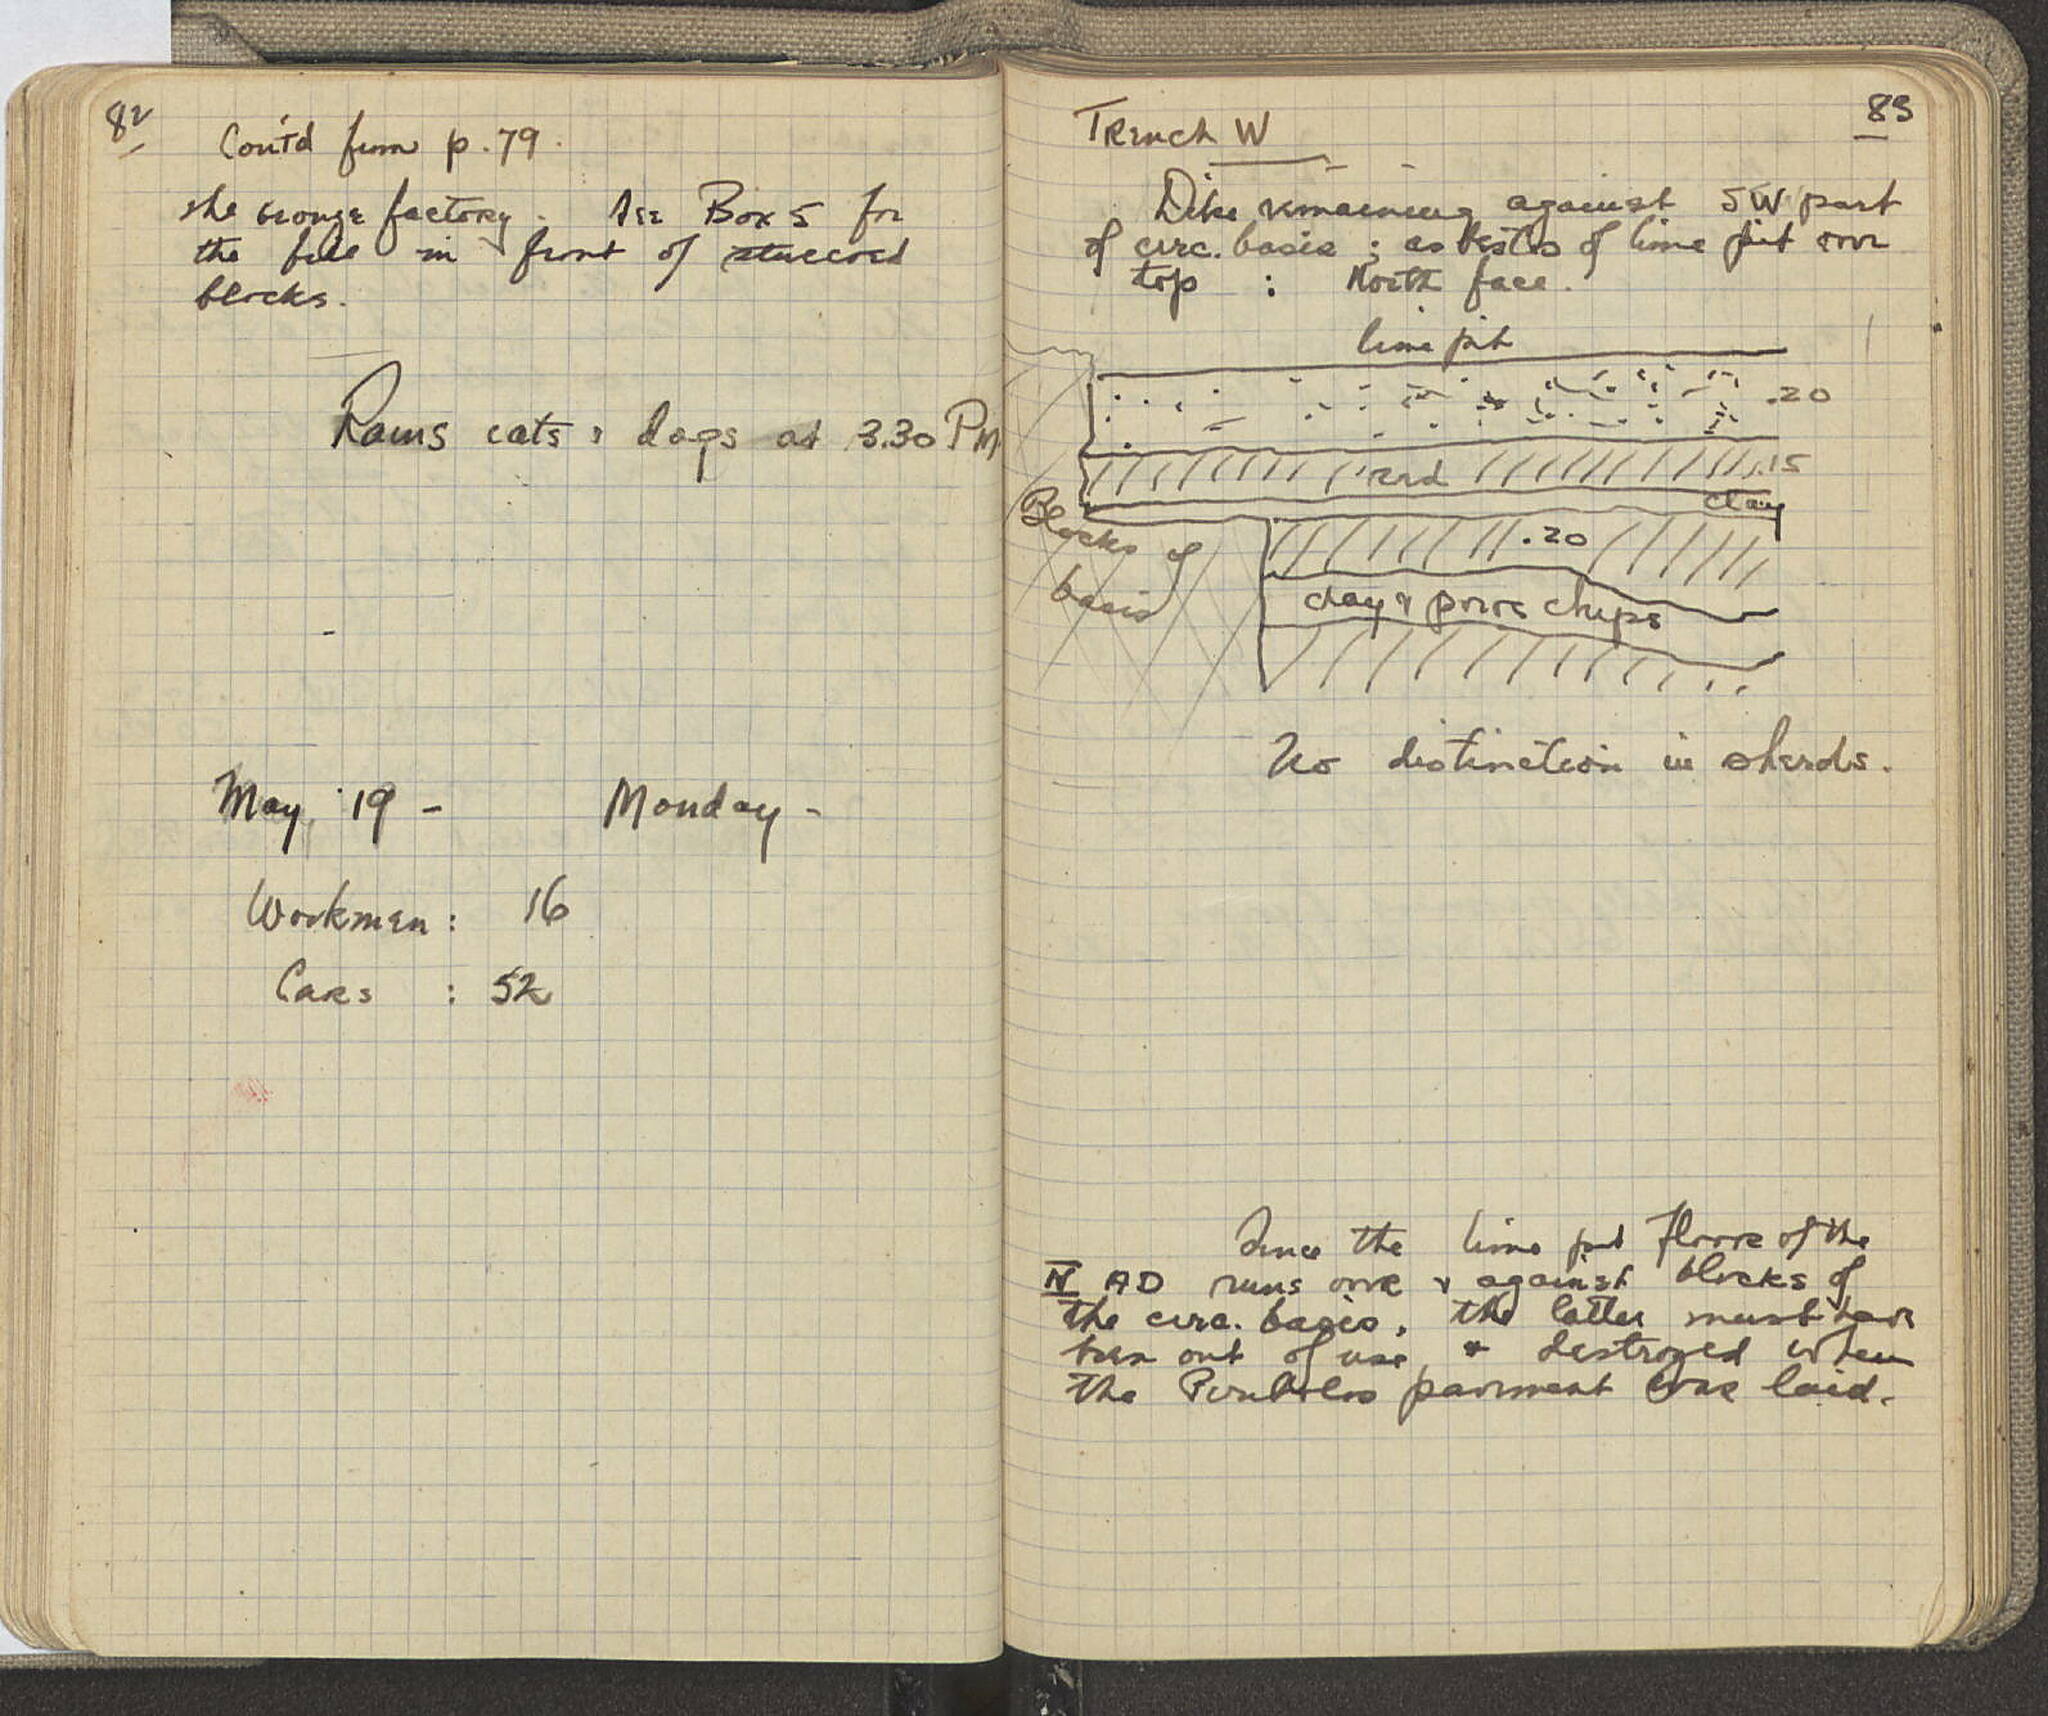 82
Con'td from p. 79.
the bronze factory. See Box 5 for
the fill in front of stuccoed
blocks.
Rains cats & dogs at 3.30 PM
May 19 - Monday -
Workmen: 16
Cars : 52
83
Trench W
Dike remaining against SW part
of circ. basis; as testis of lime pit over
top : North face.
lime pit
.20
red .15
clay
.20
Blocks of
basis
clay & poros chips
No distinction in sherds.
Since the lime pit floor of the
IV AD runs over & against blocks of
the circ. basis, the latter must have
been out of use, & destroyed when
the Peribolos pavement was laid.